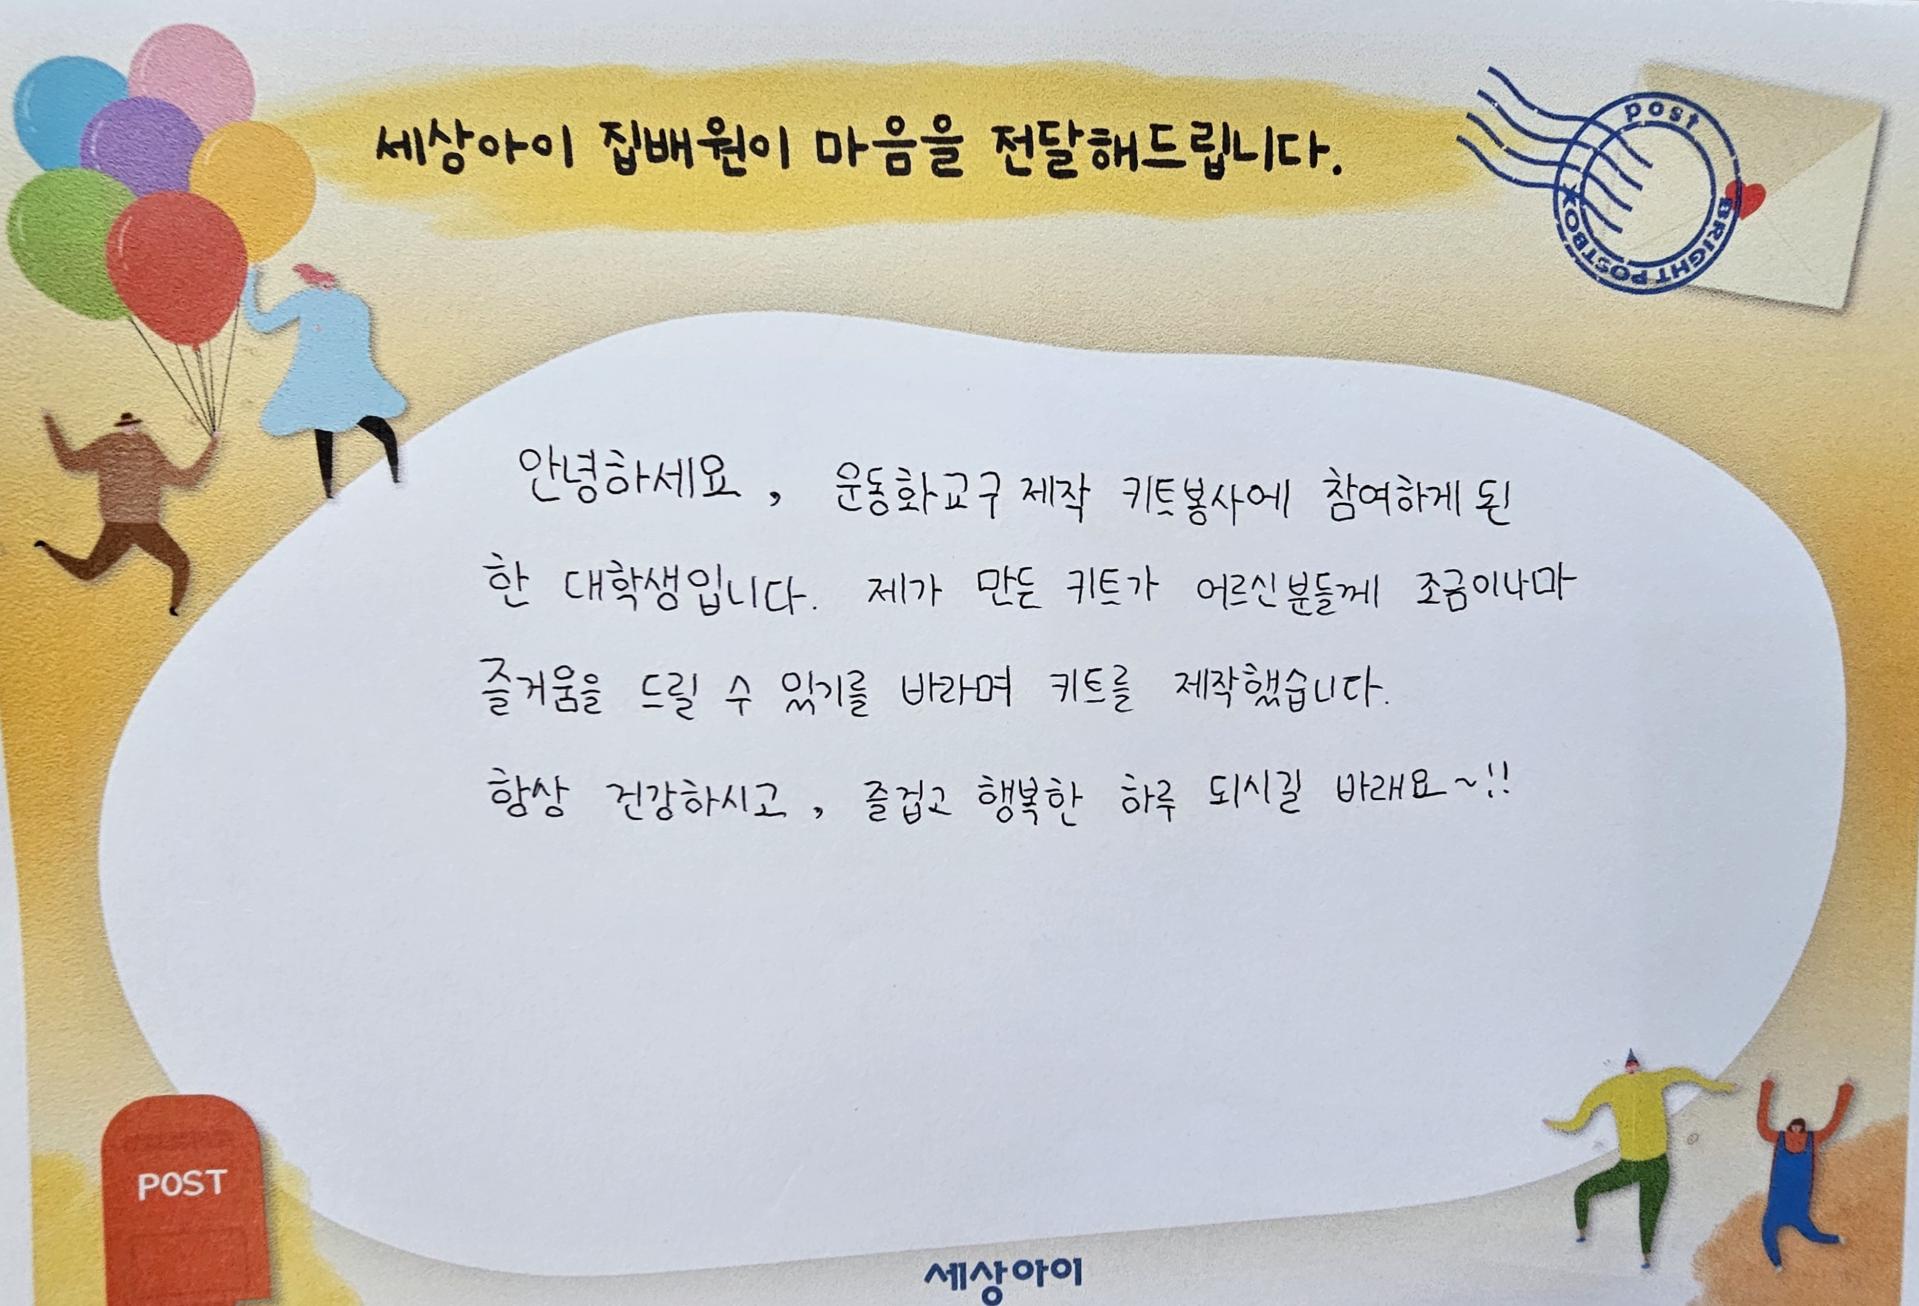 세상아이 집배원이 마음을 전달해드립니다.
post
BRIGHT POSTBOX
안녕하세요, 운동화교구 제작 키트봉사에 참여하게 된
한 대학생입니다. 제가 만든 키트가 어르신분들께 조금이나마
즐거움을 드릴 수 있기를 바라며 키트를 제작했습니다.
항상 건강하시고, 즐겁고 행복한 하루 되시길 바래요~!!
POST
세상아이